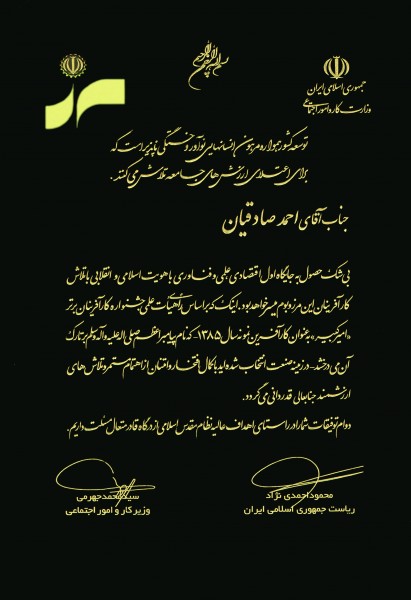 بسم الله الرحمن الرحیم
جمهوری اسلامی ایران
وزارت کار و امور اجتماعی
توسعه کشور همواره مرهون هم انسانهایی نوآور و خستگی ناپذیر است که
برای اعتلای ارزش های جامعه تلاش می کنند.
جناب آقای احمد صادقیان
بی شک حصول به جایگاه اول اقتصادی علمی و فناوری با هویت اسلامی و انقلابی با تلاش
کارآفرینان این مرز و بوم میسر خواهد بود. اینک که بر اساس رأی هیأت علمی جشنواره کارآفرینان برتر
«امیرکبیر» به عنوان کارآفرین نمونه سال ۱۳۸۵- که نام پیامبر اعظم صلی الله علیه و آله وسلم بر تارک
آن می درخشد- در زمینه صنعت انتخاب شده اید با کمال افتخار و امتنان از اهتمام مستمر و تلاش های
ارزشمند جنابعالی قدردانی می گردد.
دوام توفیقات شما را در راستای اهداف عالیه نظام مقدس اسلامی از درگاه قادر متعال مسئلت داریم.
محمود احمدی نژاد
ریاست جمهوری اسلامی ایران
سید محمد جهرمی
وزیر کار و امور اجتماعی